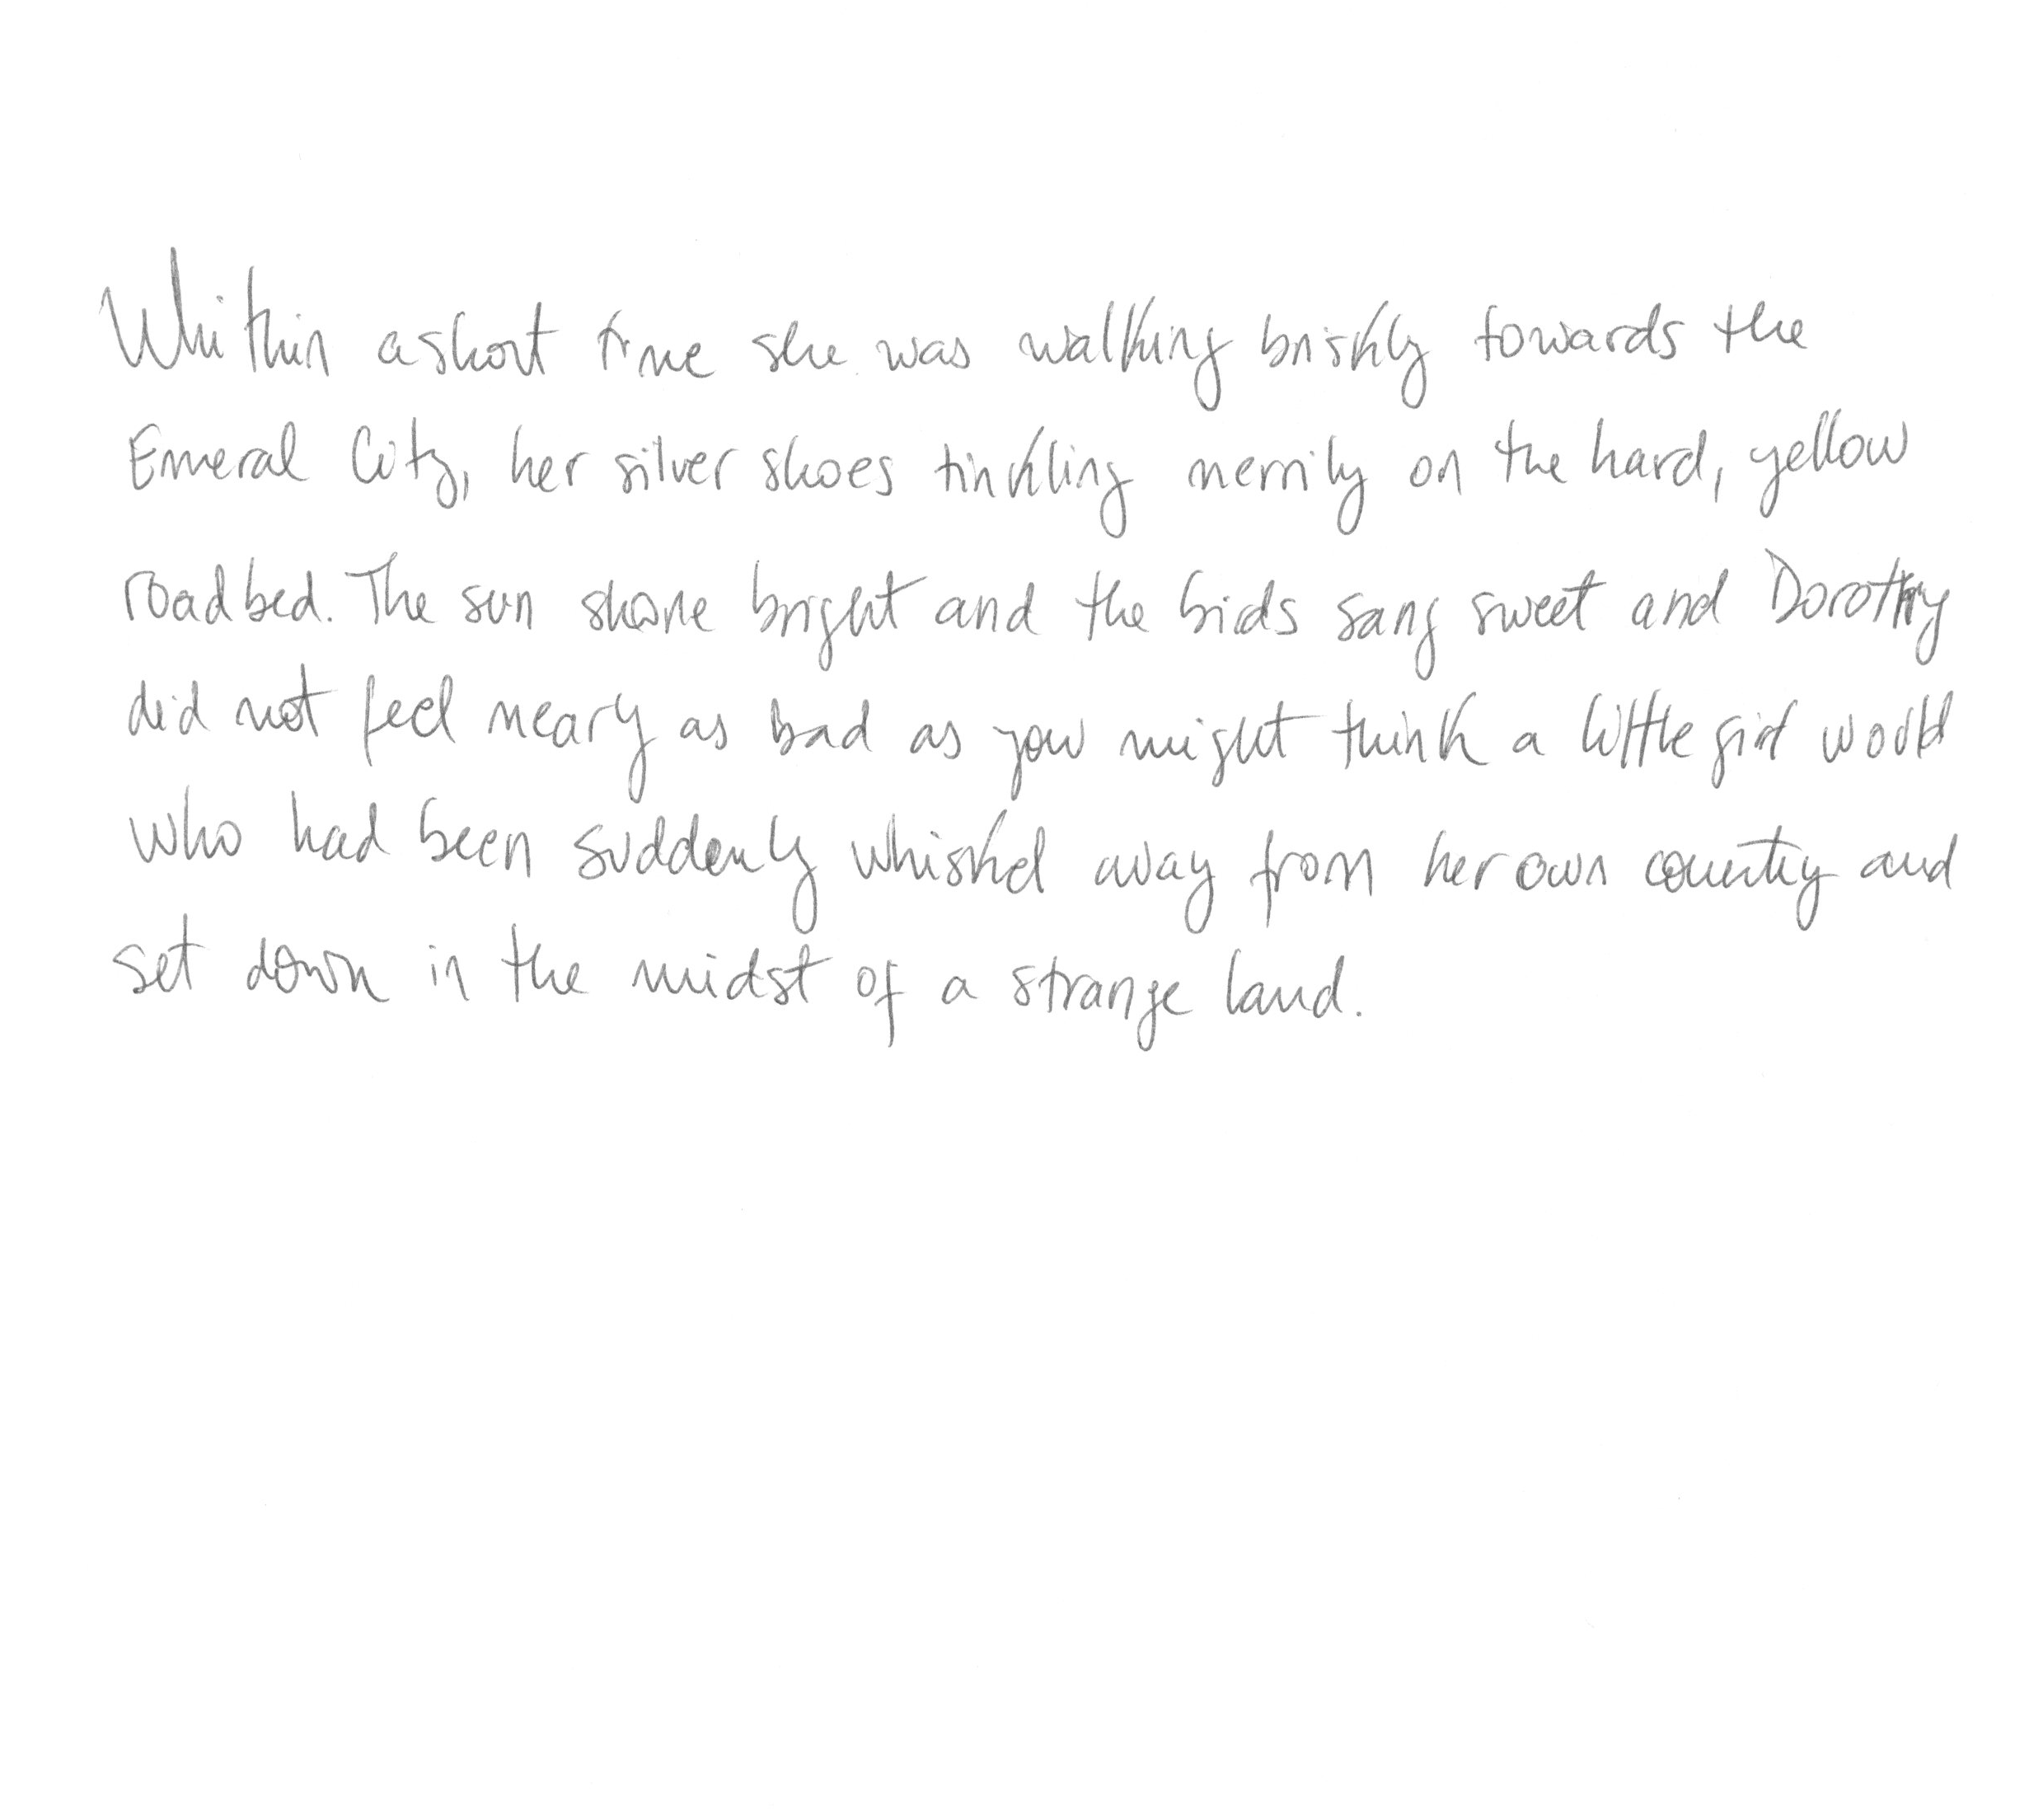 Whithin a short time she was walking briskly towards the
Emeral City, her silver shoes tinkling merrily on the hard, yellow
roadbed. The sun shone bright and the birds sang sweet and Dorothy
did not feel neary as bad as you might think a little girl would
who had been suddenly whisked away from her own country and
set down in the midst of a strange land.